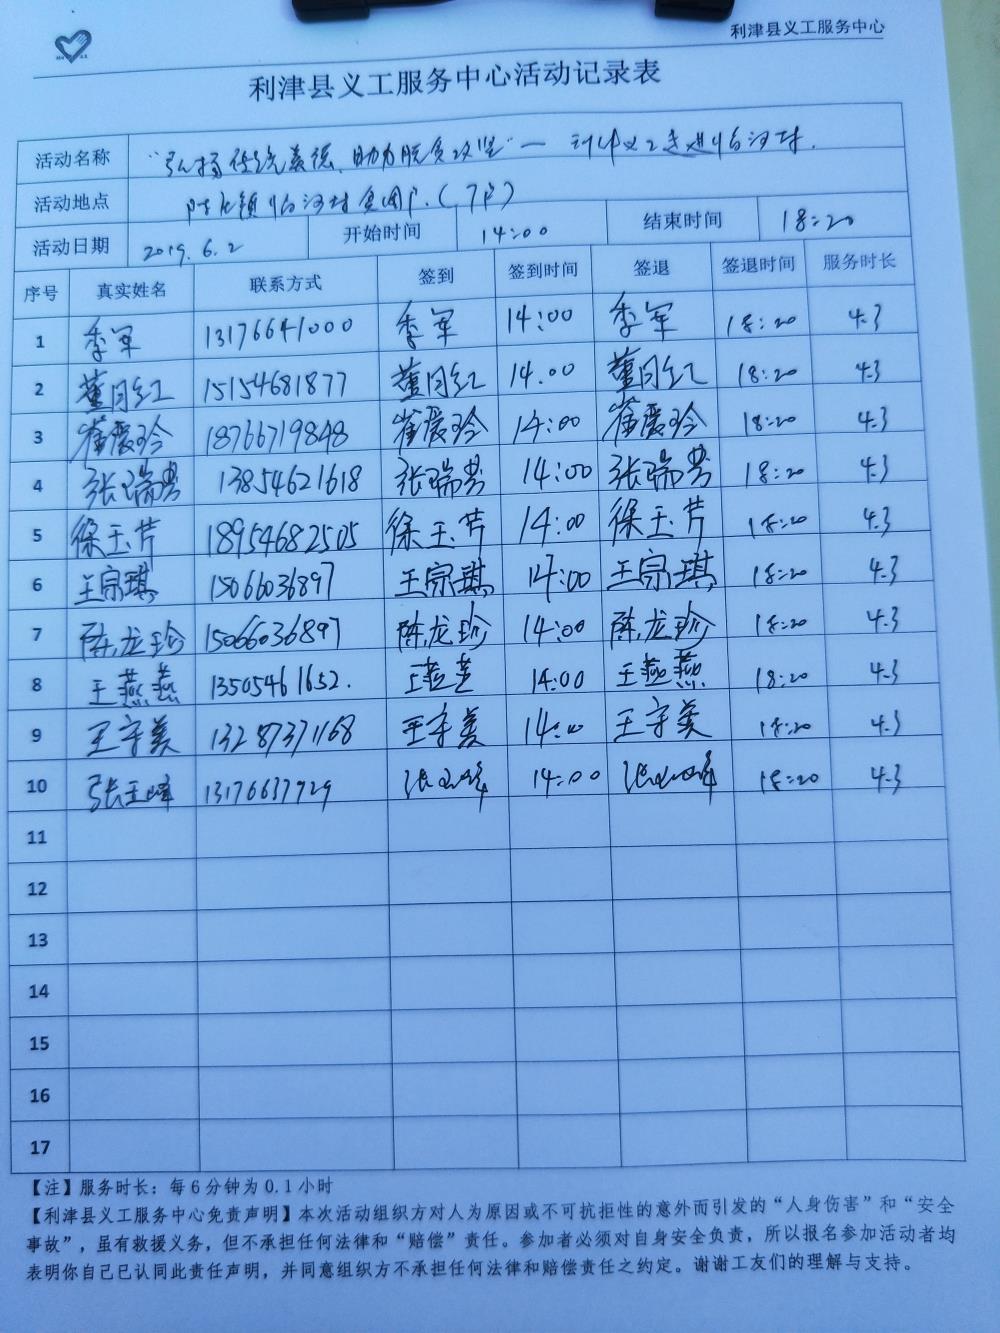 利津县义工服务中心
利津县义工服务中心活动记录表
活动名称 "弘扬传统美德、助力脱贫攻坚"— 利津义工走进临河村.
活动地点 陈庄镇临河村贫困户.(7户)
活动日期 2019.6.2 开始时间 14:00 结束时间 18:20
序号 真实姓名 联系方式 签到 签到时间 签退 签退时间 服务时长
1 季军 13176641000 季军 14:00 季军 18:20 4.3
2 董月红 15154681877 董月红 14.00 董月红 18:20 4.3
3 崔爱玲 18766719848 崔爱玲 14:00 崔爱玲 18:20 4.3
4 张瑞芳 13854621618 张瑞芳 14:00 张瑞芳 18:20 4.3
5 徐玉芹 18954682505 徐玉芹 14:00 徐玉芹 18:20 4.3
6 王宗琪 15066036897 王宗琪 14:00 王宗琪 18:20 4.3
7 陈龙珍 15066036897 陈龙珍 14:00 陈龙珍 18:20 4.3
8 王燕燕 13505461652. 王燕燕 14:00 王燕燕 18:20 4.3
9 王守美 13287371168 王守美 14:00 王守美 18:20 4.3
10 张玉峰 13176637929 张玉峰 14:00 张玉峰 18:20 4.3
11
12
13
14
15
16
17
【注】服务时长：每6分钟为0.1小时
【利津县义工服务中心免责声明】本次活动组织方对人为原因或不可抗拒性的意外而引发的“人身伤害”和“安全
事故”，虽有救援义务，但不承担任何法律和“赔偿”责任。参加者必须对自身安全负责，所以报名参加活动者均
表明你自己已认同此责任声明，并同意组织方不承担任何法律和赔偿责任之约定。谢谢工友们的理解与支持。